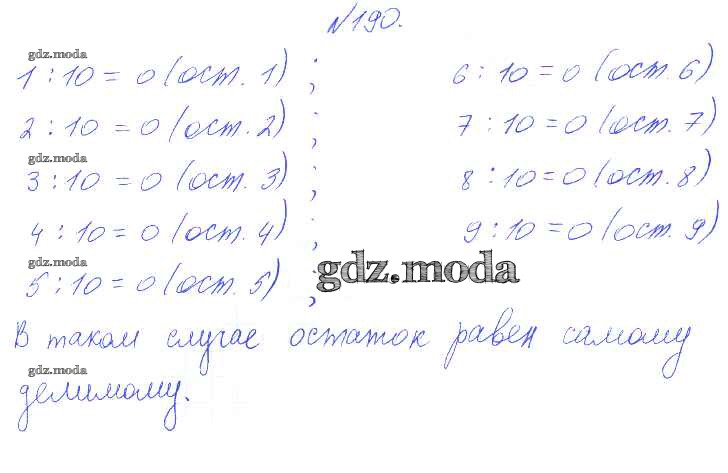 №190.
gdz.moda
1 : 10 = 0 (ост. 1) ; 6 : 10 = 0 (ост. 6)
2 : 10 = 0 (ост. 2) ; 7 : 10 = 0 (ост. 7)
gdz.moda
3 : 10 = 0 (ост. 3) ; 8 : 10 = 0 (ост. 8)
4 : 10 = 0 (ост. 4) ; 9 : 10 = 0 (ост. 9)
gdz.moda
gdz.moda
5 : 10 = 0 (ост. 5) ;
В таком случае остаток равен самому
gdz.moda
делимому.